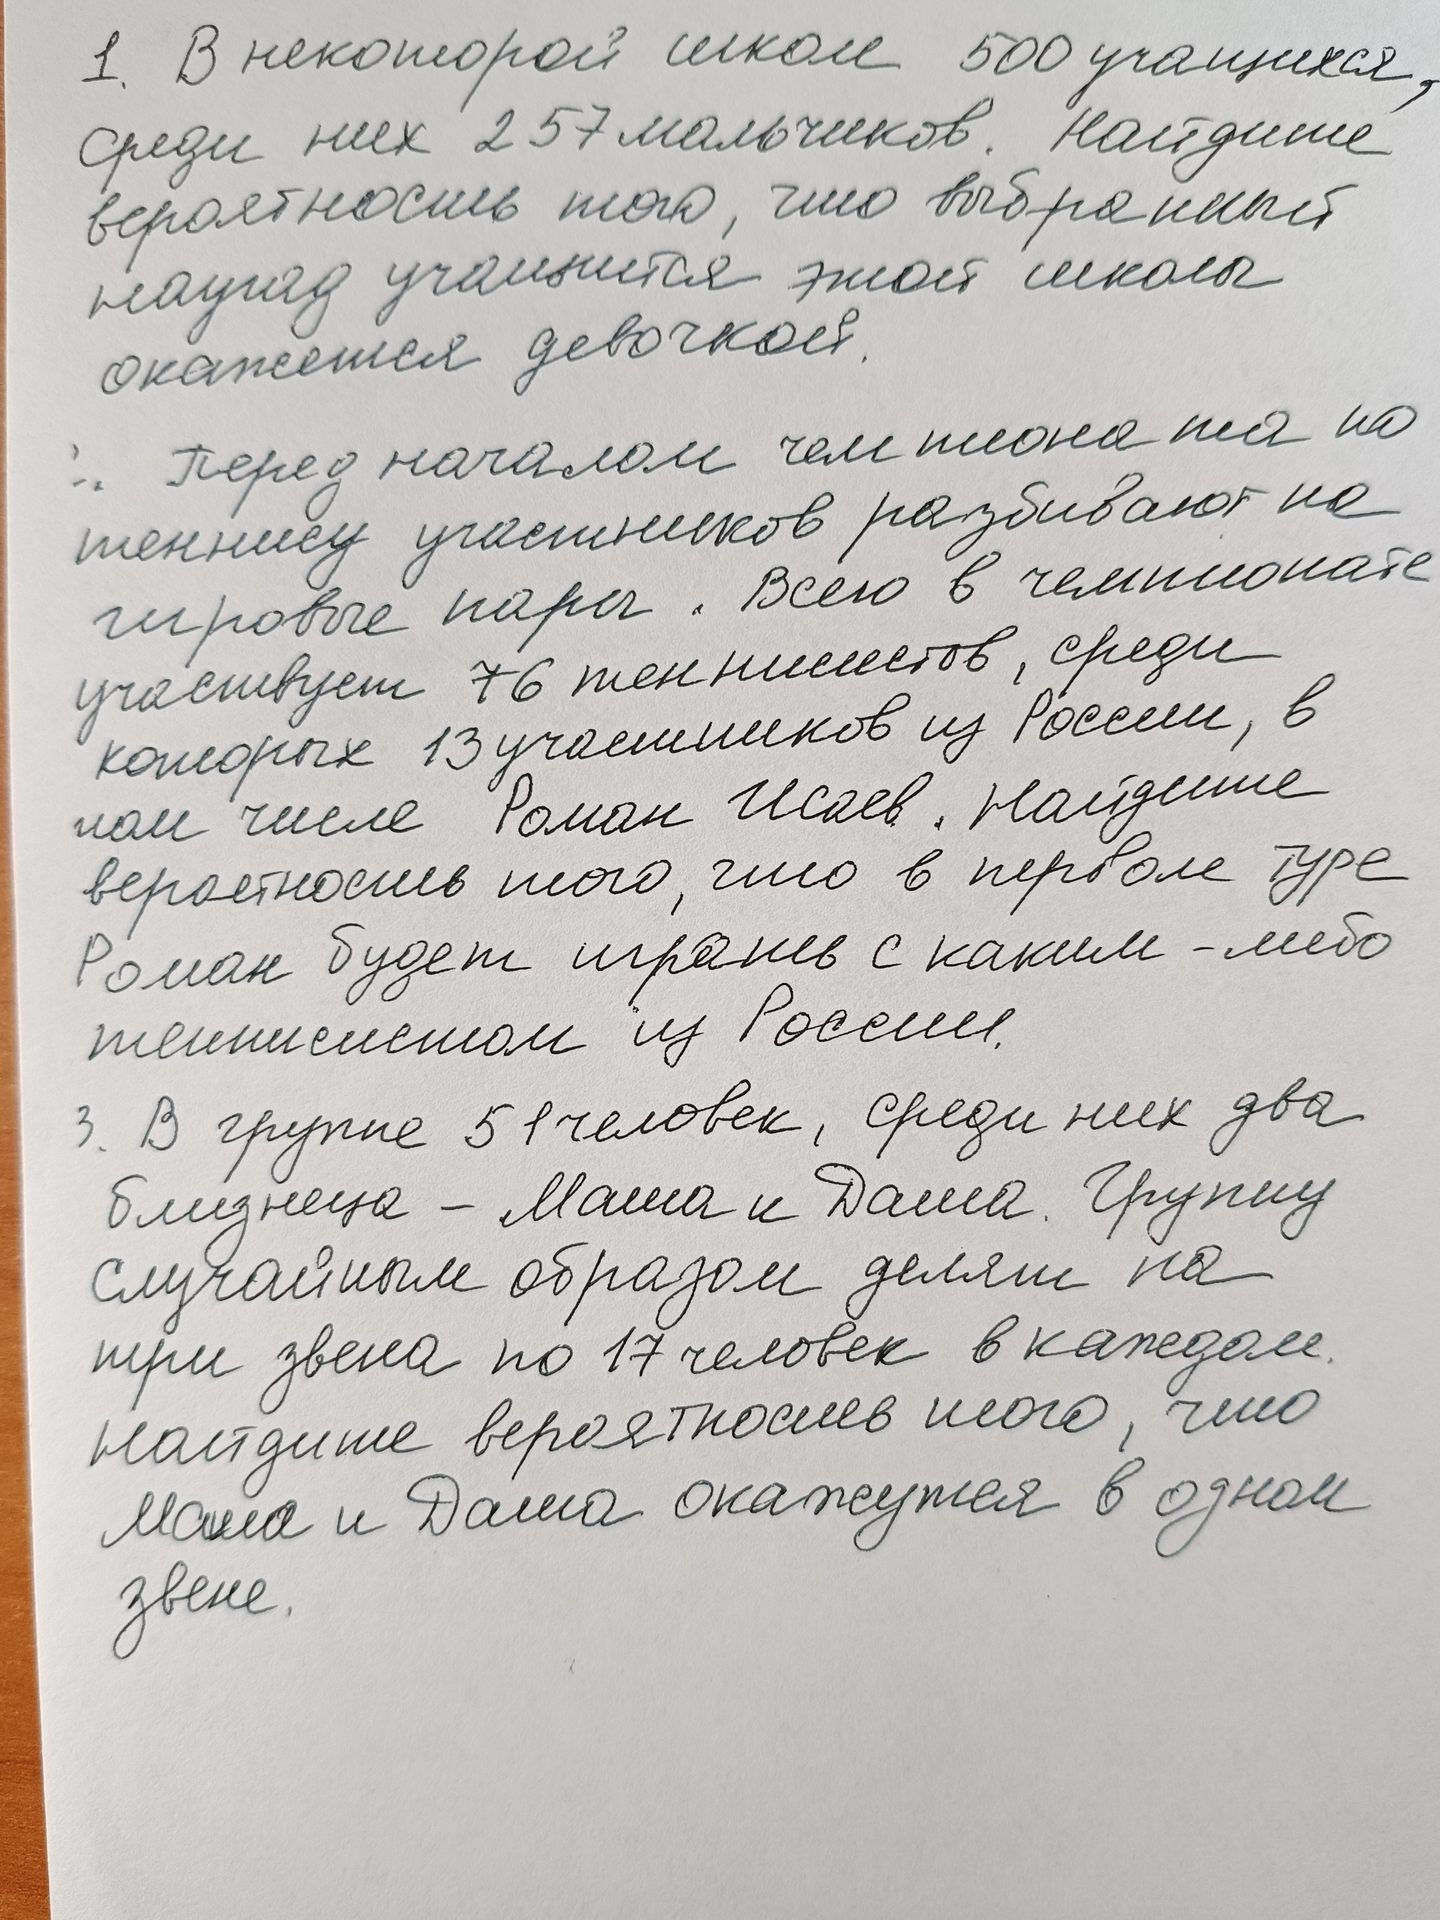 1. В некоторой школе 500 учащихся,
среди них 257 мальчиков. Найдите
вероятность того, что выбранный
наугад учащийся этой школы
окажется девочкой.
2. Перед началом чемпионата по
теннису участников разбивают на
игровые пары. Всего в чемпионате
участвует 76 теннисистов, среди
которых 13 участников из России, в
том числе Роман Исаев. Найдите
вероятность того, что в первом туре
Роман будет играть с каким-либо
теннисистом из России.
3. В группе 51 человек, среди них два
близнеца - Маша и Даша. Группу
случайным образом делят на
три звена по 17 человек в каждом.
Найдите вероятность того, что
Маша и Даша окажутся в одном
звене.